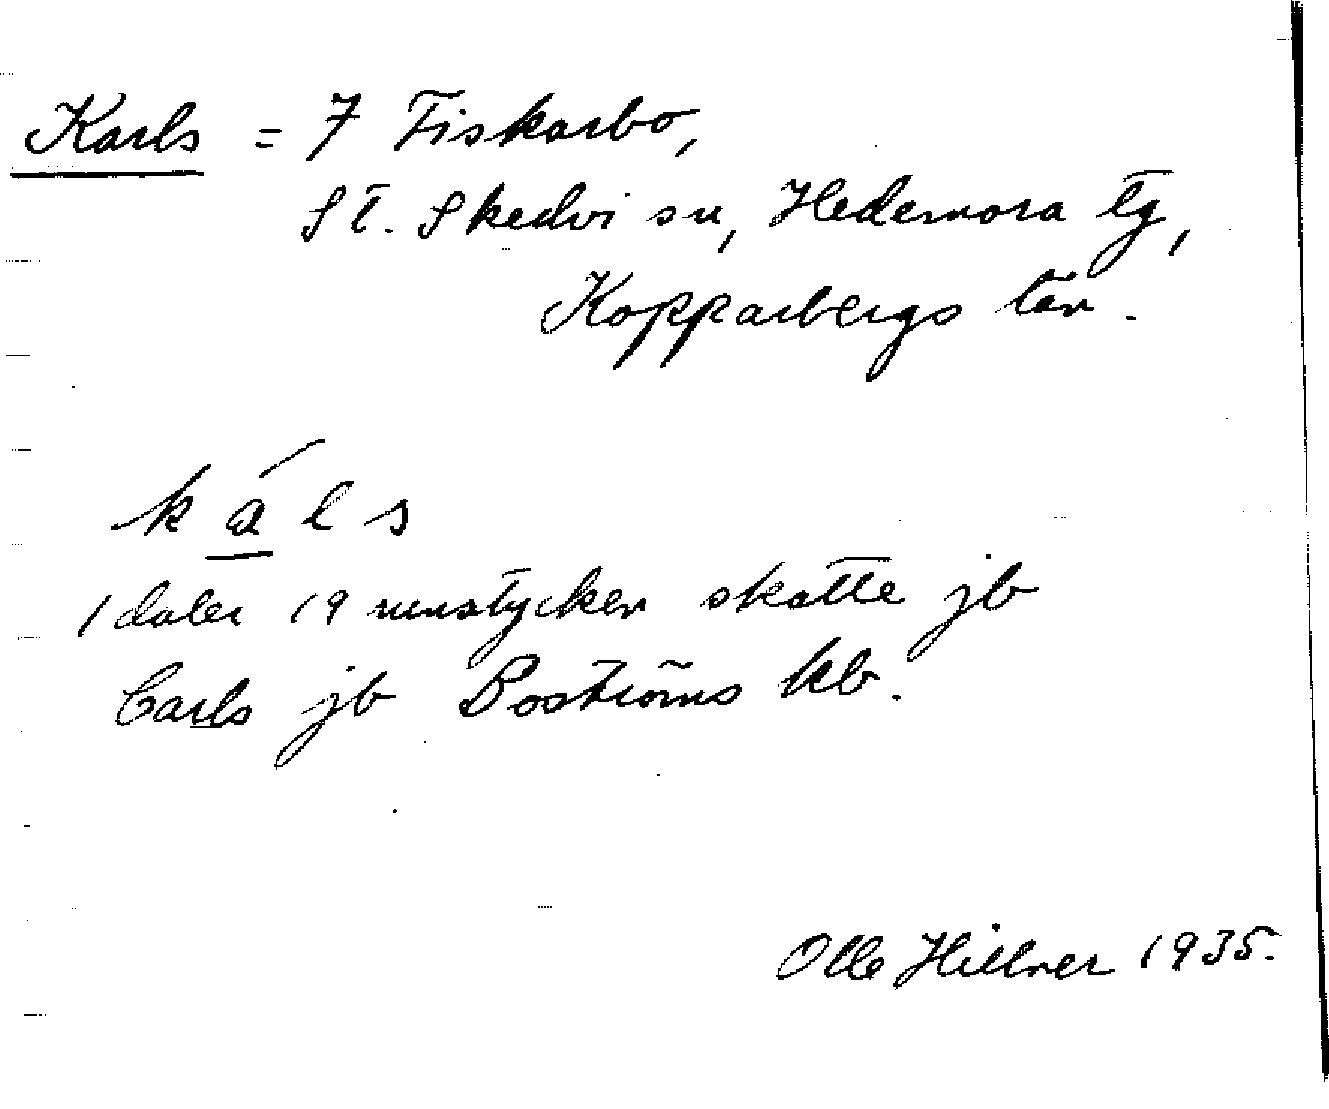 Karls = 7 Fiskarbo,
St. Skedvi sn, Hedemora tg,
Kopparbergs län.
k á l s
1 daler 19 runstycken skatte jb
Carls jb Boströms kb.
Olle Hillner 1935.